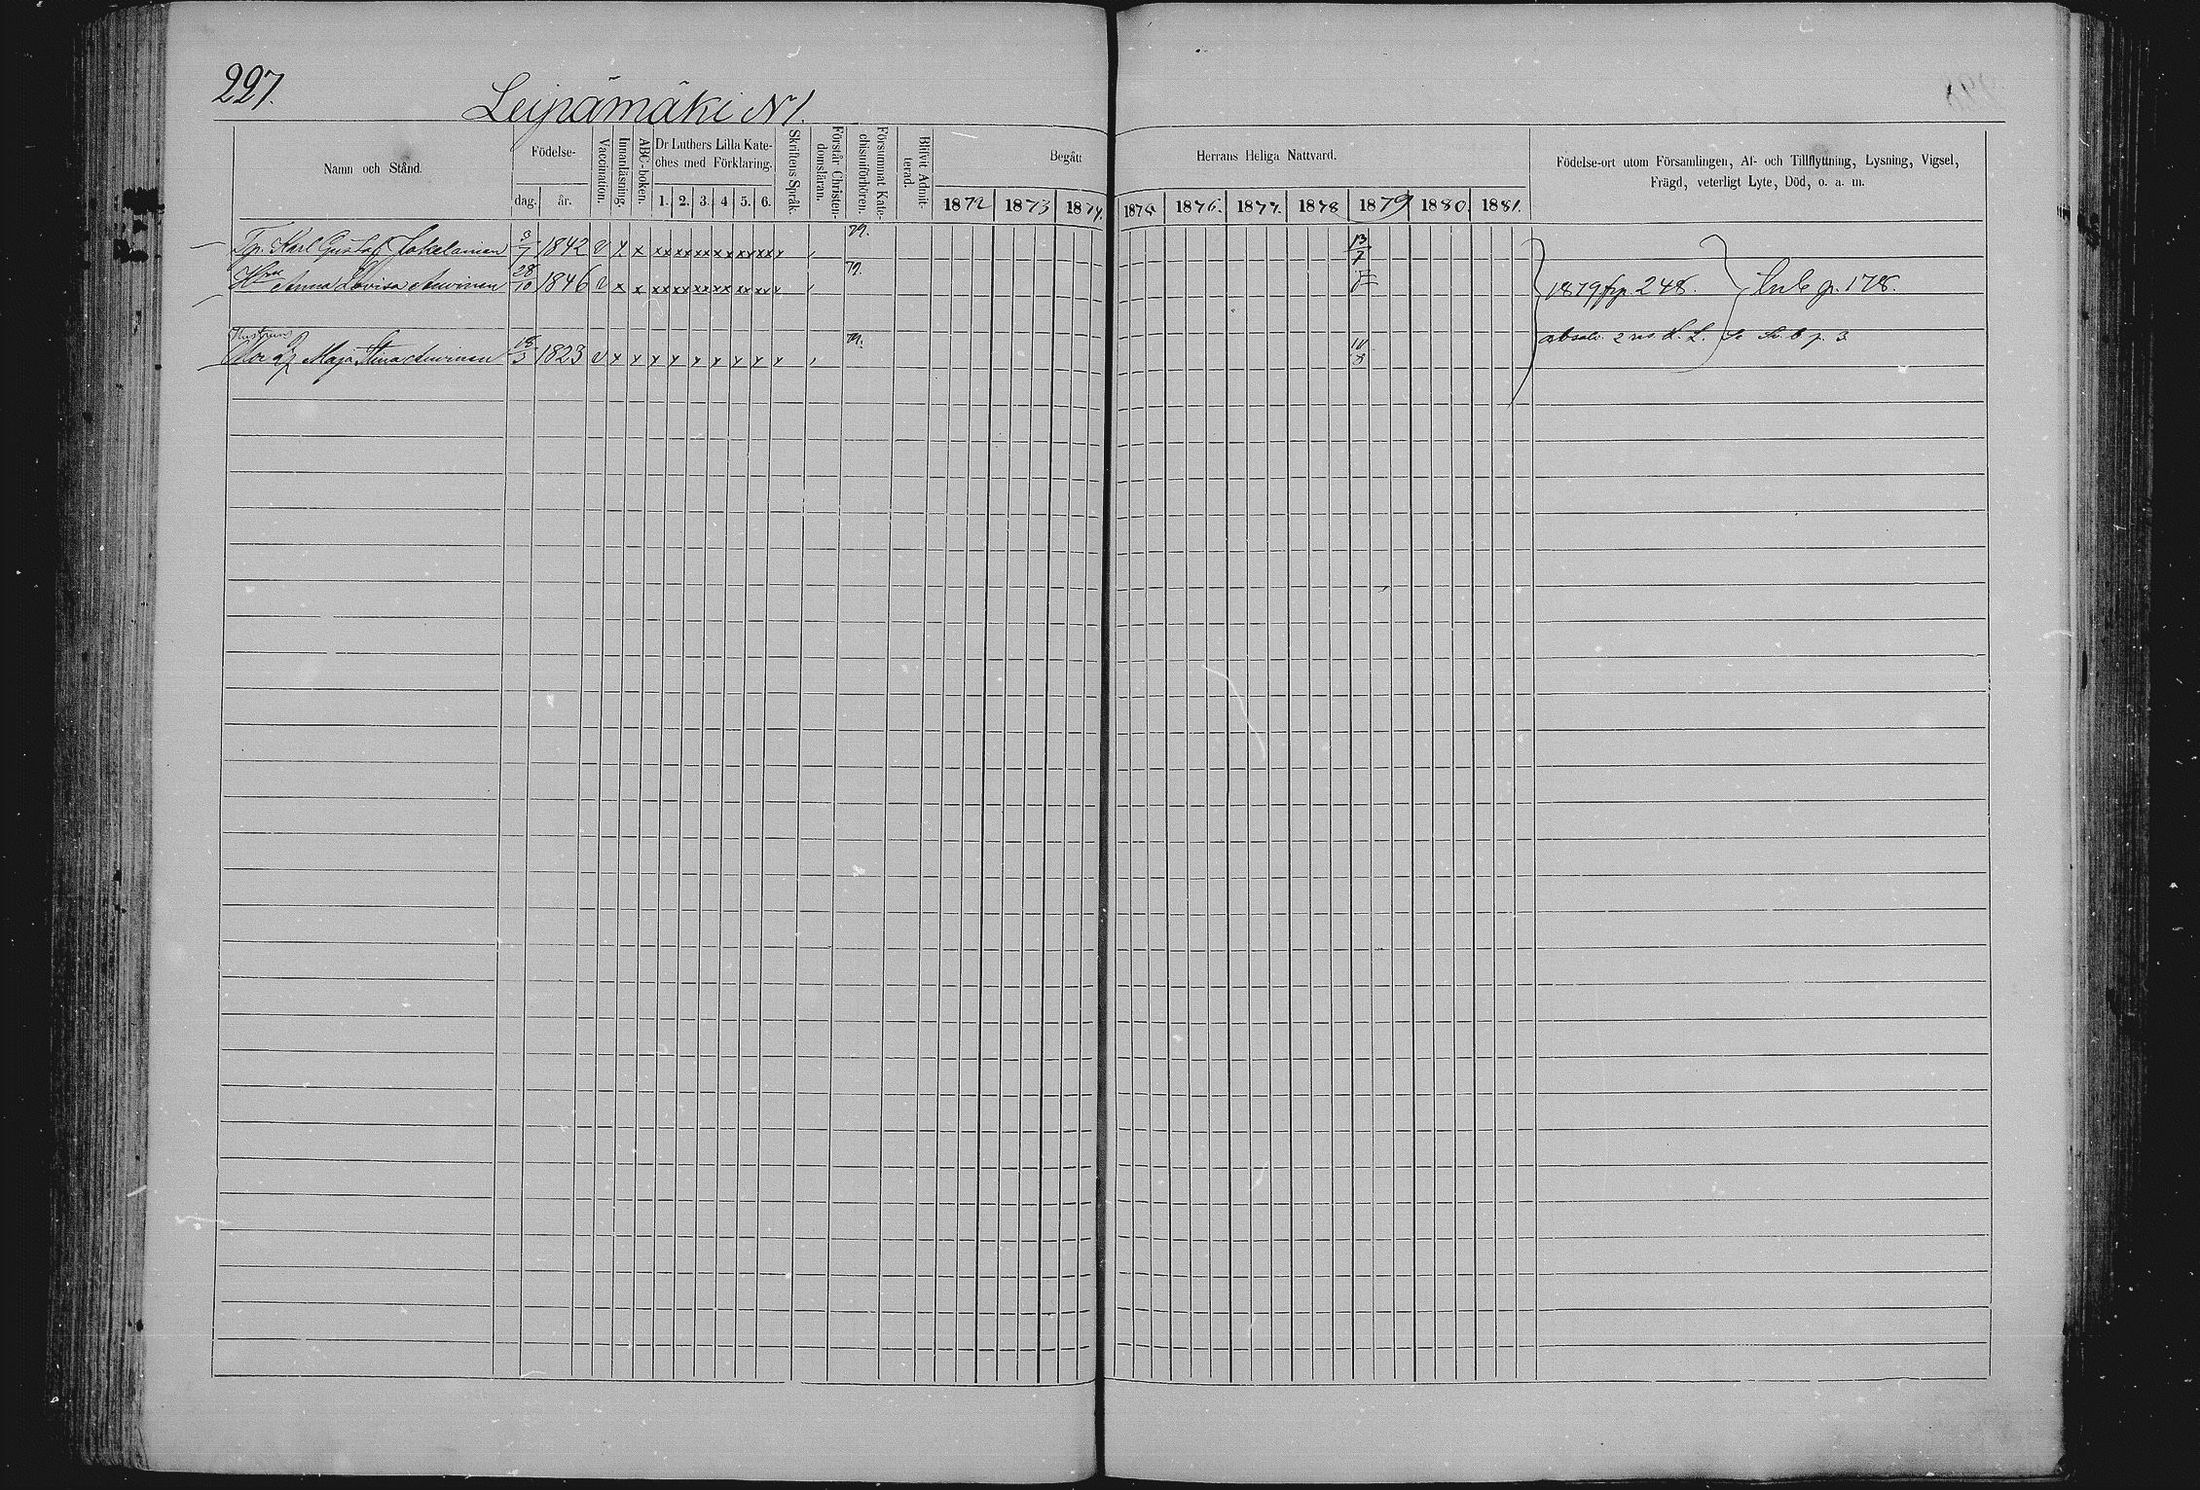 227.
Leipämäki N 1.
Namn och Stånd.
Födelse-
dag.
år.
Vaccination.
Innanläsning.
ABC-boken.
Dr Luthers Lilla Kate-
ches med Förklaring.
1. 2. 3. 4 5. 6.
Skriftens Språk.
Förstår Christen-
domsläran.
Försummat Kate-
chismiförhören.
Blifvit Admit-
terad.
Begått Herrans Heliga Nattvard.
1872 1873 1874. 1875 1876. 1877. 1878 1879 1880. 1881.
Födelse-ort utom Församlingen, Af- och Tillflyttning, Lysning, Vigsel,
Frägd, veterligt Lyte, Död, o. a. m.
Karl Gustaf 1842 v x x xx xx xx xx xx xx 79. 13/7
Anna Lovisa Auvinen 28/10 1846 v x x xx xx xx xx xx xx 79. 1879 frp. 248. p. 178.
Maja Stina Auvinen 18/3 1823 v x x x x x x x x 79. 10/8 2 K. L. b p. 3